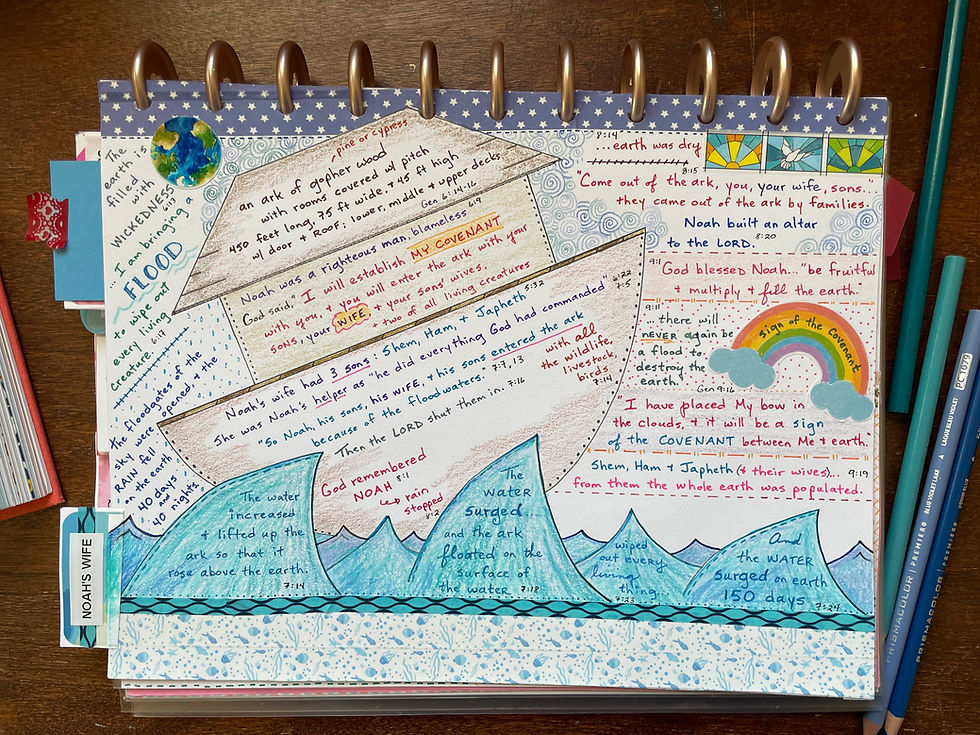 The
earth is
filled
with
WICKEDNESS
6:17
I am bringing a
...FLOOD
to wipe out
every living
creature. 6:17
The floodgates of the
sky were opened, & the
RAIN fell
on the earth
40 days &
40 nights.
pine or cypress
an ark of gopher wood
with rooms covered w/ pitch
450 feet long, 75 ft wide, & 45 ft high
w/ door & ROOF; lower, middle & upper decks
Gen 6:14-16
Noah was a righteous man, blameless 6:9
God said, "I will establish MY COVENANT
with you, & you will enter the ark
sons, your WIFE, & your sons' wives,
with your
& two of all living creatures
Noah's wife had 3 sons: Shem, Ham, & Japheth 5:32
She was Noah's helper as "he did everything God had commanded" 6:22
7:5
"So Noah, his sons, his WIFE, & his sons entered the ark
because of the floodwaters. 7:7, 13
with all
the wildlife,
livestock,
birds
7:14
Then the LORD shut them in. 7:16
God remembered
NOAH 8:1
rain
stopped
8:2
The water
increased
& lifted up the
ark so that it
rose above the earth.
7:14
The
WATER
surged...
and the ark
floated on the
surface of
the water. 7:18
wiped
out every
living
thing...
7:23
And
the WATER
surged on earth
150 days. 7:24
8:14
...earth was dry
8:15
"Come out of the ark, you, your wife, sons.."
they came out of the ark by families.
Noah built an altar
to the LORD. 8:20
9:1
"God blessed Noah..."be fruitful
& multiply & fill the earth."
9:11
...there will
NEVER again be
a flood to
destroy the
earth.
Gen 9:16
sign of the Covenant
"I have placed My bow in
the clouds, & it will be a sign
of the COVENANT between Me & earth."
Shem, Ham & Japheth (& their wives)... 9:19
from them the whole earth was populated.
NOAH'S WIFE
PC 1079
BLUE VIOLET LAKE
LAQUE BLEU VIOLET
PRISMACOLOR | PREMIER
PRISMACOLOR